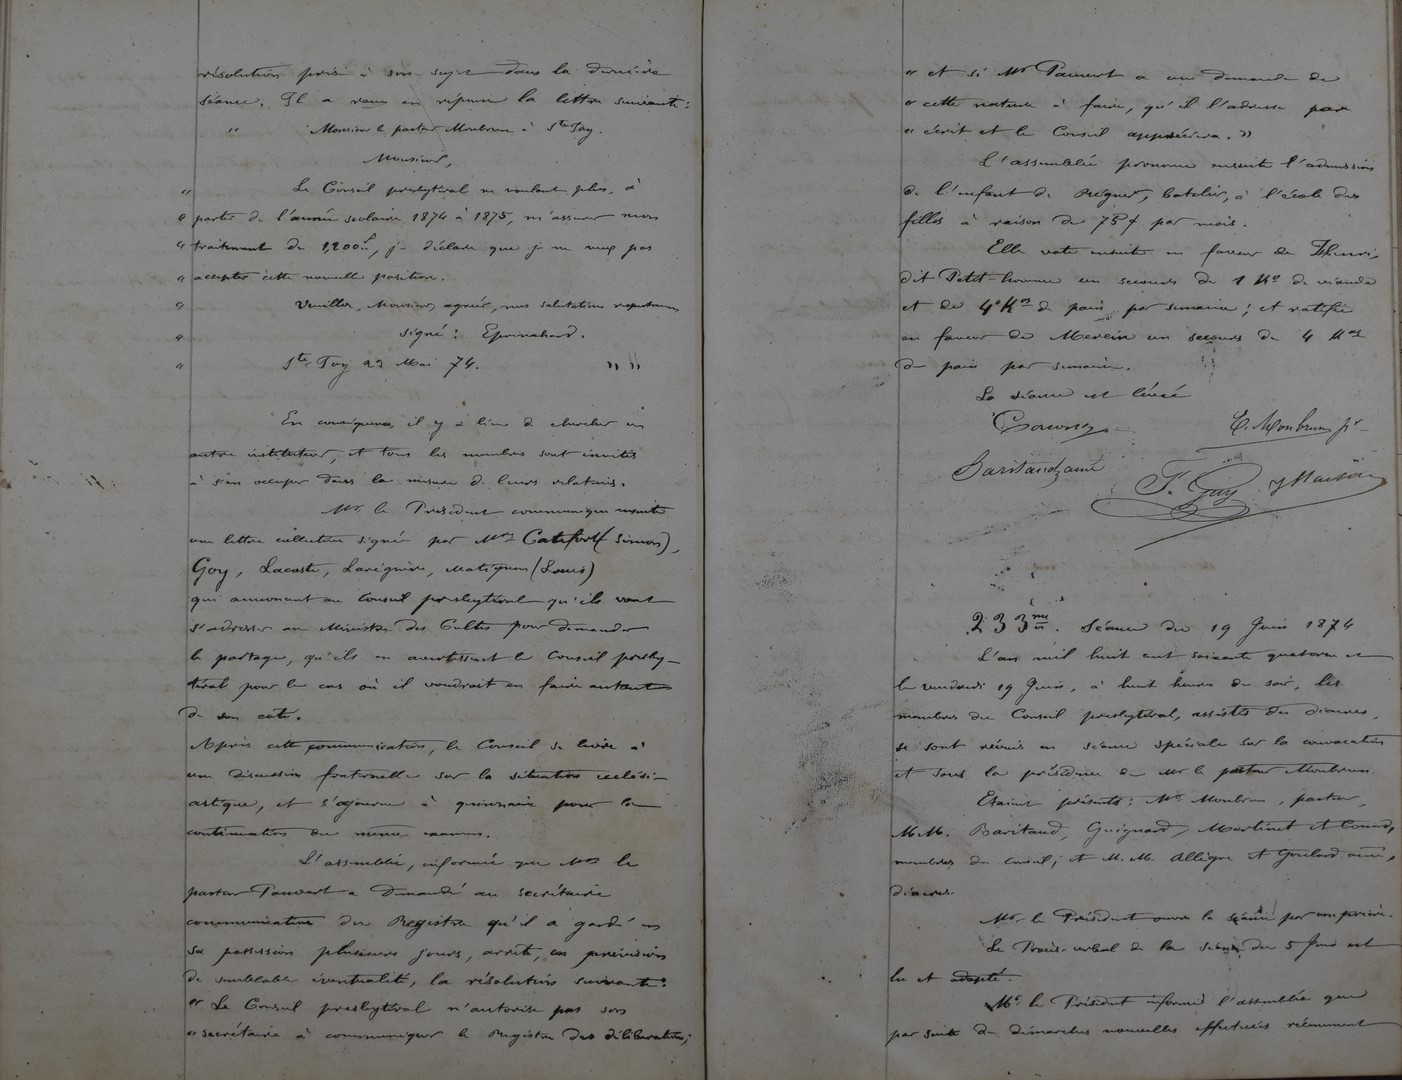 résolution prise à son sujet dans la dernière
séance. Il a reçu en réponse la lettre suivante:
" Monsieur le pasteur Monbrun à Ste Foy.
Monsieur,
" Le Conseil presbytéral ne voulant plus, à
" partir de l'année scolaire 1874 à 1875, m'assurer mon
" traitement de 1,200f, je déclare que je ne veux pas
" accepter cette nouvelle position.
" Veuillez, Monsieur, agréer, mes salutations
" Signé:
" Ste Foy 23 Mai 74. " "
En conséquence, il y a lieu de chercher un
autre instituteur, et tous les membres sont invités
à s'en occuper dans la mesure de leurs relations.
Mr. le Président communique ensuite
une lettre collective signée par Mrs Catefort (Simon),
Goy, Lacoste, Larégnère, Matignon (Louis)
qui annoncent au Conseil presbytéral qu'ils vont
s'adresser au Ministre des Cultes pour demander
le partage, qu'ils en avertissent le Conseil presby-
téral pour le cas où il voudrait en faire autant
de son côté.
Après cette communication, le Conseil se livre à
une discussion fraternelle sur la situation ecclési-
astique, et s'ajourne à quinzaine pour la
continuation du même examen.
L'assemblée, informée que Mr le
pasteur Pauvert a demandé au secrétaire
communication du Registre qu'il a gardé en
sa possession plusieurs jours, arrête, en prévision
de semblable éventualité, la résolution suivante:
" Le Conseil presbytéral n'autorise pas son
" secrétaire à communiquer le Registre des délibérations;
" et si Mr Pauvert a une demande de
" cette nature à faire, qu'il l'adresse par
" écrit et le Conseil appréciera. "
L'assemblée prononce ensuite l'admission
de l'enfant de Regner, batelier, à l'école des
filles à raison de 75c par mois.
Elle vote ensuite en faveur de Henri,
dit Petit-homme un secours de 1 Ko de viande
et de 4 Kos de pain par semaine; et ratifie
en faveur de Merein un secours de 4 Kos
de pain par semaine.
La séance est levée
E. Monbrun pr
Baritaud, ainé
F. Goy
233me. Séance du 19 Juin 1874
L'an mil huit cent soixante quatorze et
le vendredi 19 Juin, à huit heures du soir, les
membres du Conseil presbytéral, assistés des diacres,
se sont réunis en séance spéciale sur la convocation
et sous la présidence de Mr le pasteur Monbrun.
Etaient présents: Mr. Monbrun, pasteur,
MM. Baritaud, Guignard, Martinet et
membres du Conseil; et M.M. Allègre et Goulard ainé,
diacres.
Mr. le Président ouvre la séance par une prière.
Le Procès-verbal de la séance du 5 Juin est
lu et adopté.
Mr. le Président informe l'assemblée que
par suite de démarches nouvelles effectuées récemment